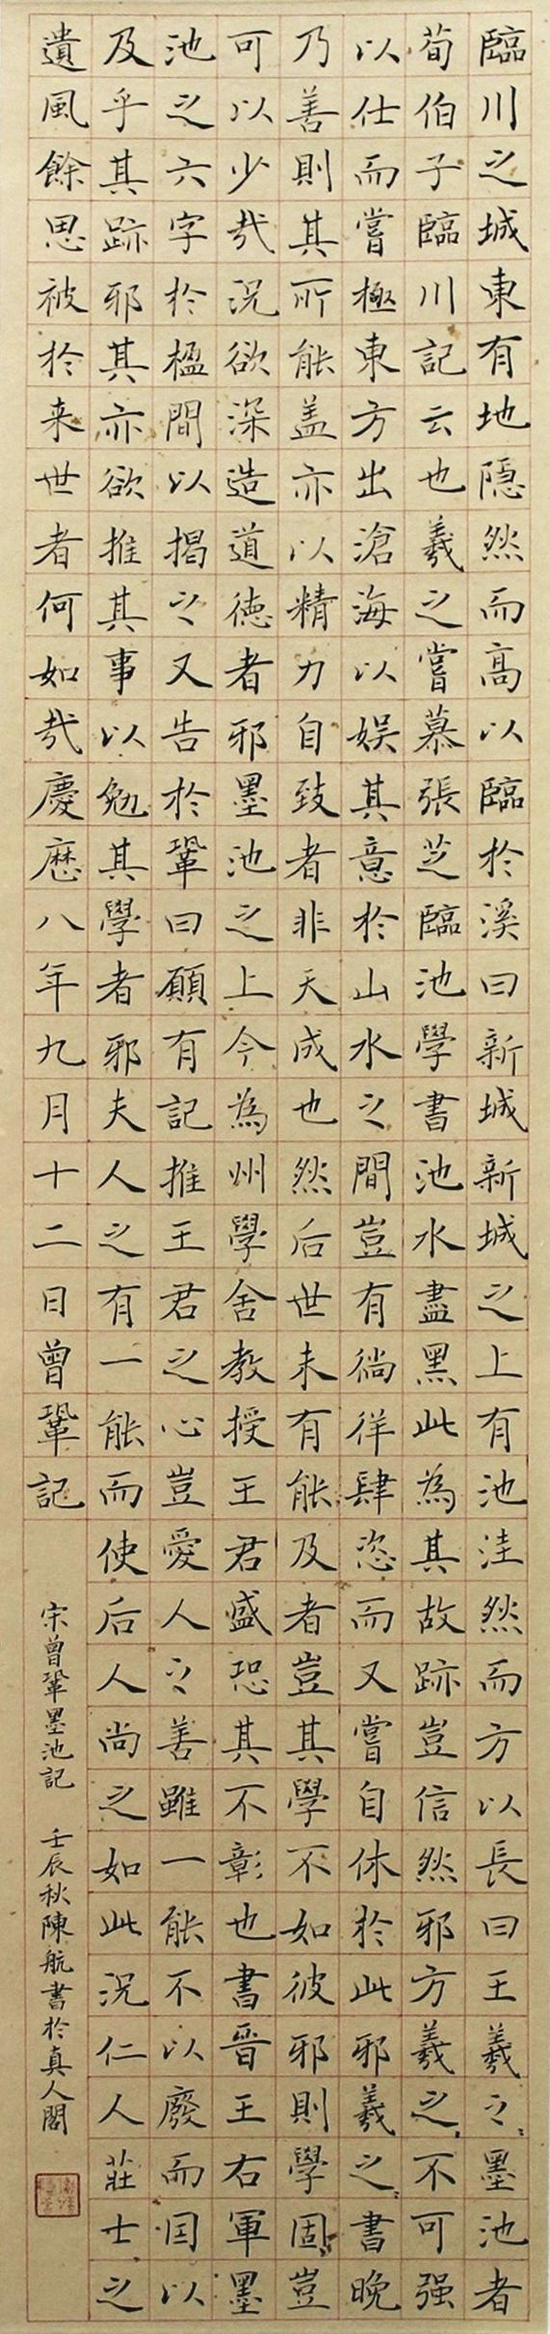 臨川之城東有地隠然而高以臨於溪曰新城新城之上有池洼然而方以長曰王羲之墨池者
荀伯子臨川記云也羲之嘗慕張芝臨池學書池水盡黑此為其故跡豈信然邪方羲之不可强
以仕而嘗極東方出滄海以娱其意於山水之間豈有徜徉肆恣而又嘗自休於此邪羲之書晚
乃善則其所能盖亦以精力自致者非天成也然后世未有能及者豈其學不如彼邪則學固豈
可以少哉況欲深造道德者邪墨池之上今為州學舍教授王君盛恐其不彰也書晉王右軍墨
池之六字於楹間以揭之又告於鞏曰願有記推王君之心豈愛人之善雖一能不以廢而因以
及乎其跡邪其亦欲推其事以勉其學者邪夫人之有一能而使后人尚之如此況仁人莊士之
遺風餘思被於来世者何如哉慶歷八年九月十二日曾鞏記
宋曾鞏墨池記 壬辰秋陳航書於真人閣